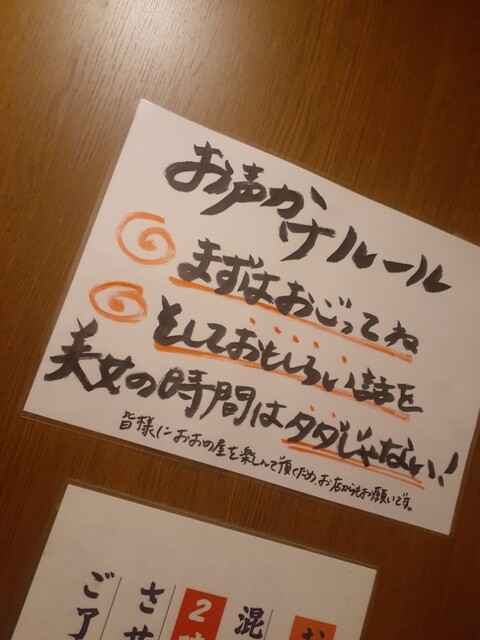 お声かけルール
まずはおごってね
そしておもしろい話を
美女の時間はタダじゃない!
皆様におおの屋を楽しんで頂くため、お店からもお願いです。
混
2時
さ
ご了